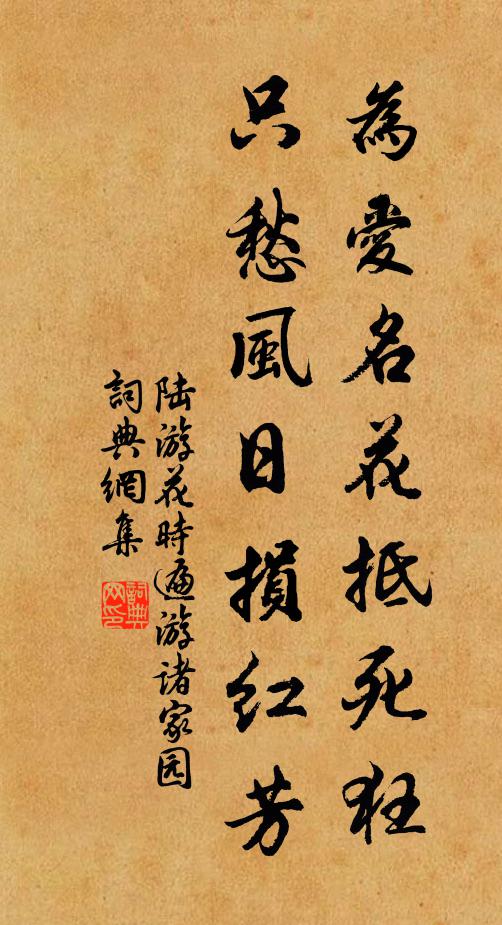 為愛名花抵死狂
只愁風日損红芳
陆游花時遍游诸家园
詞典網集
詞典网印